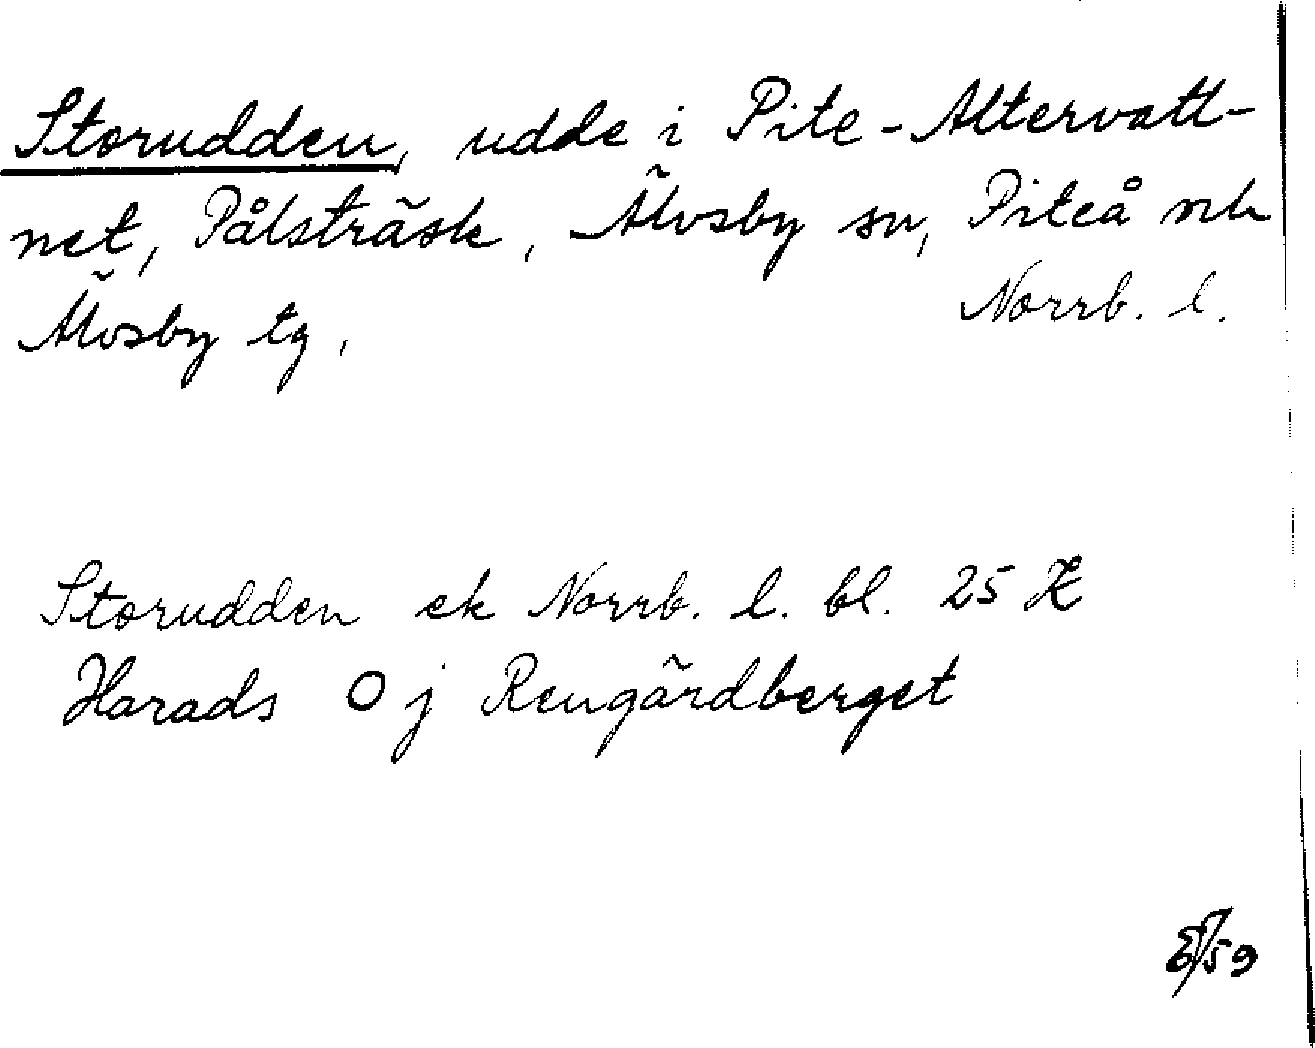 Storudden, udde i Pite-Altervatt-
net, Pålsträsk, Älvsby sn, Piteå
Älvsby tg, Norrb. l.
Storudden ek Norrb. l. bl. 25
Harads O j Rengårdberget
/59